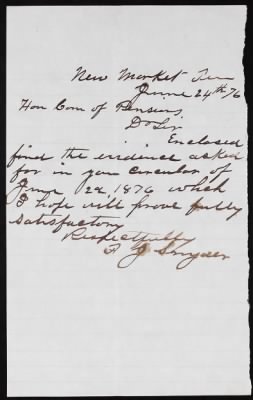 New Market Ten
June 24th 76
Hon Com of Pensions,
D Sir
Enclosed
find the evidence asked
for in your circular of
June 22 1876 which
I hope will prove fully
satisfactory
Respectfully
J Snyder